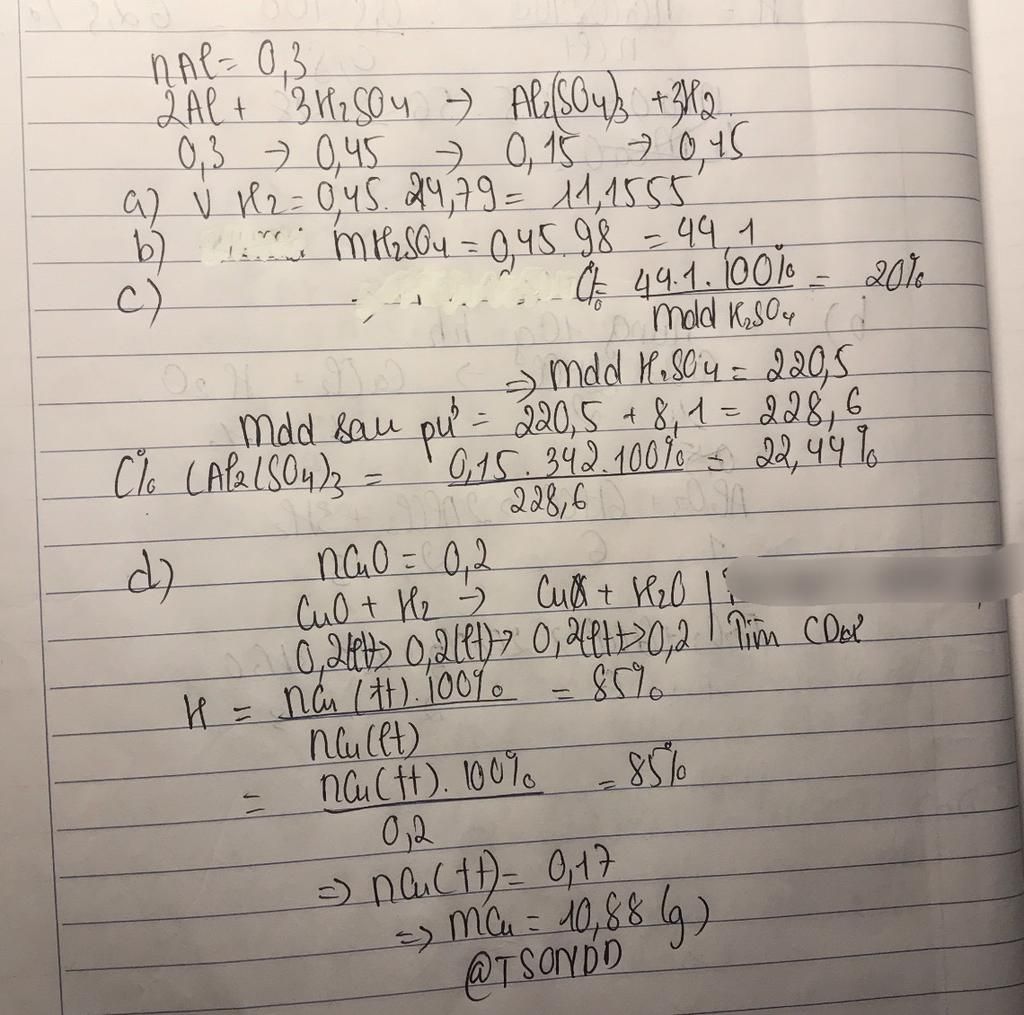 nAl = 0,3
2Al + 3H2SO4 → Al2(SO4)3 + 3H2
0,3 → 0,45 → 0,15 → 0,45
a) V H2 = 0,45. 24,79 = 11,1555
b) mH2SO4 = 0,45. 98 = 44,1
c) C% = 44.1. 100% / mdd H2SO4 = 20%
⇒ mdd H2SO4 = 220,5
mdd sau pứ = 220,5 + 8,1 = 228,6
C% (Al2(SO4)3 = 0,15. 342. 100% / 228,6 = 22,44%
d) nCuO = 0,2
CuO + H2 → Cu + H2O
0,2(lt) → 0,2(lt) → 0,2(lt) → 0,2 | Tim
H = nCu (tt). 100% / nCu(lt) = 85%
= nCu(tt). 100% / 0,2 = 85%
⇒ nCu(tt) = 0,17
⇒ mCu = 10,88 (g)
@TSONDD